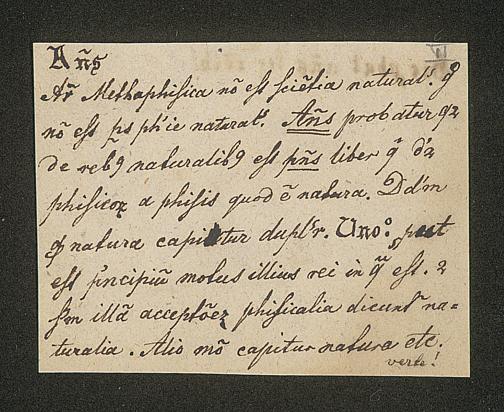 Añs
Ar̃ Methaphisica nō est sciētia natural'. g°
nō est ps ph'ie natural'. Añs probatur q2
de reb9 naturalib9 est pñs liber q̄ d'2
phisicoꝝ a phisis quod ē natura. Dd'm
ꝙ natura capitur dupl'r. Uno°. put
est p'ncipiū motus illius rei in q̄ est. 2
s'm illā acceptōeꝫ phisicalia dicunt~ na-
turalia. Alio mō capitur natura etc.
verte!